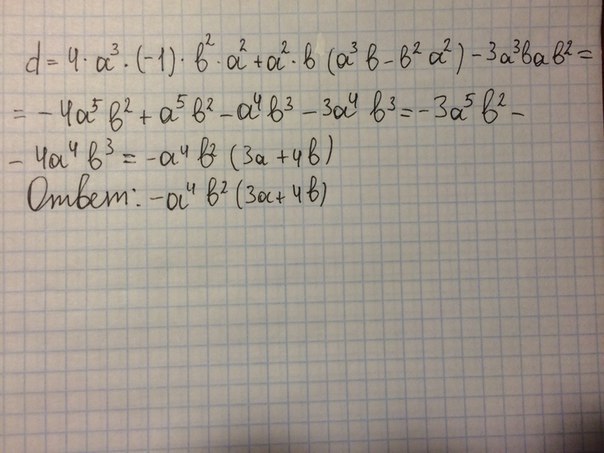 d = 4·a³·(-1)·b²·a² + a²·b (a³b - b²a²) - 3a³bab² =
= -4a⁵b² + a⁵b² - a⁴b³ - 3a⁴b³ = -3a⁵b² -
- 4a⁴b³ = -a⁴b² (3a + 4b)
Ответ: -a⁴b² (3a + 4b)